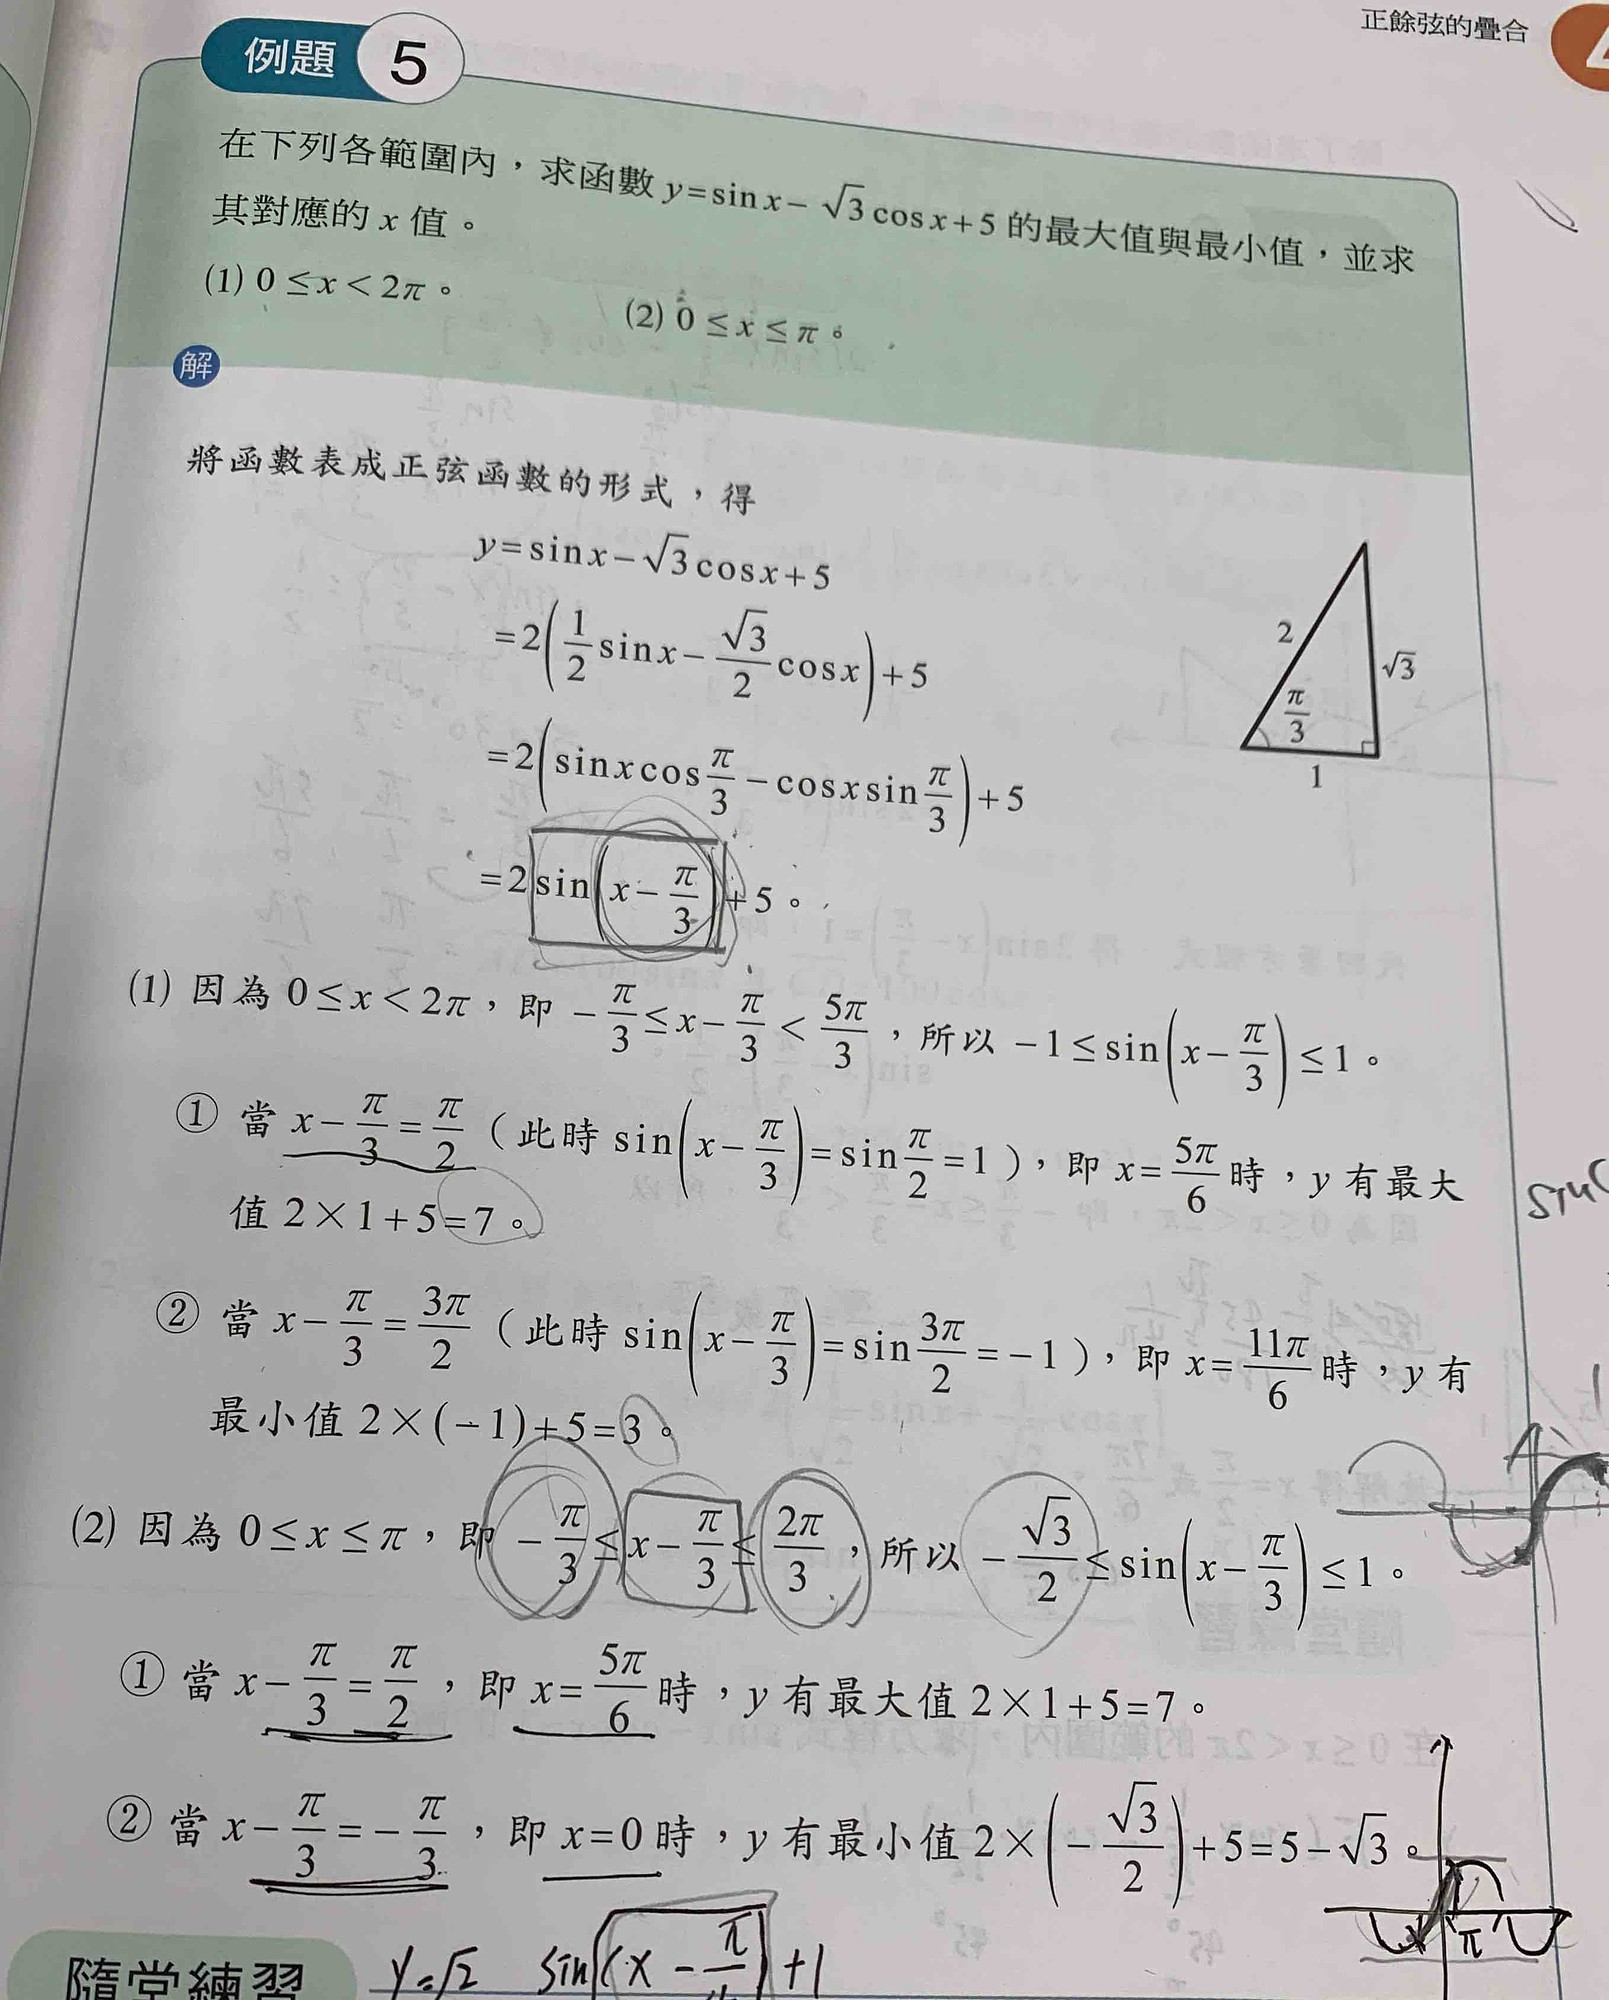 正餘弦的疊合
例題 5
在下列各範圍內，求函數 y=sin x−√3 cos x+5 的最大值與最小值，並求
其對應的 x 值。
(1) 0≤x<2π。 (2) 0≤x≤π。
解
將函數表成正弦函數的形式，得
y=sin x−√3 cos x+5
=2(1/2 sin x−√3/2 cos x)+5
=2(sin x cos π/3−cos x sin π/3)+5
=2 sin(x−π/3)+5。
2
√3
π/3
1
(1) 因為 0≤x<2π，即 −π/3≤x−π/3<5π/3，所以 −1≤sin(x−π/3)≤1。
① 當 x−π/3=π/2（此時 sin(x−π/3)=sin π/2=1），即 x=5π/6 時，y 有最大
值 2×1+5=7。
sin(
② 當 x−π/3=3π/2（此時 sin(x−π/3)=sin 3π/2=−1），即 x=11π/6 時，y 有
最小值 2×(−1)+5=3。
(2) 因為 0≤x≤π，即 −π/3≤x−π/3≤2π/3，所以 −√3/2≤sin(x−π/3)≤1。
① 當 x−π/3=π/2，即 x=5π/6 時，y 有最大值 2×1+5=7。
② 當 x−π/3=−π/3，即 x=0 時，y 有最小值 2×(−√3/2)+5=5−√3。
π
隨堂練習
y=√2 sin(x−π/ )+1